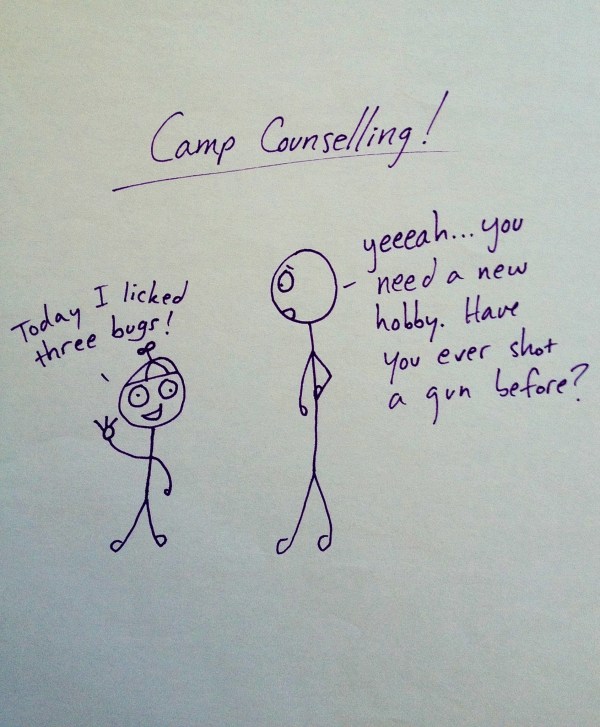 Camp Counselling!
Today I licked
three bugs!
yeeeah... you
need a new
hobby. Have
you ever shot
a gun before?